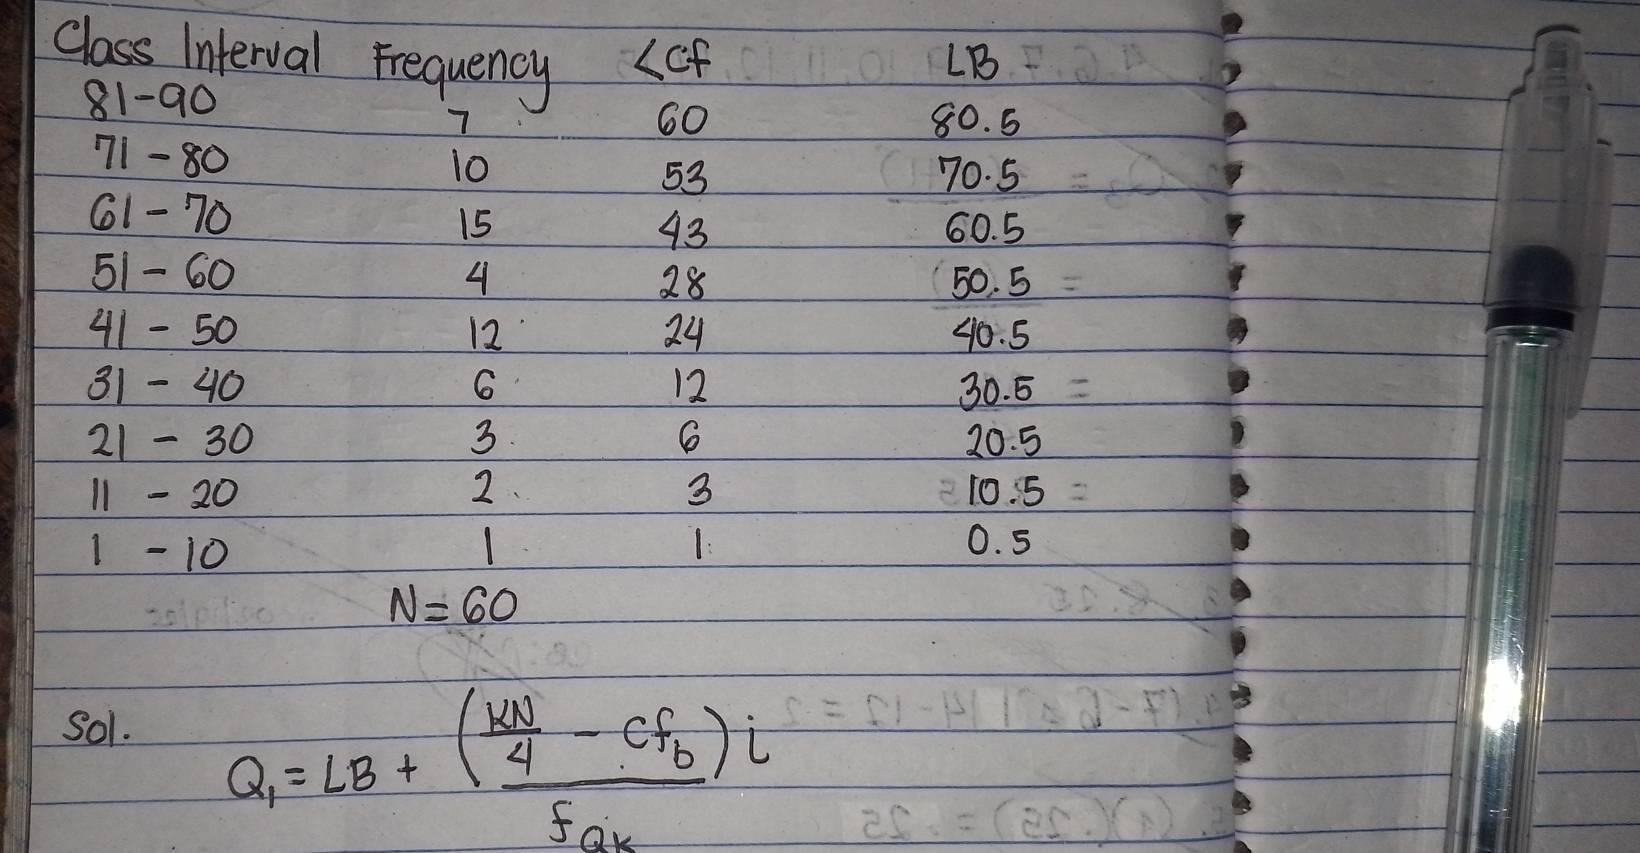 Class Interval Frequency <cf LB
81-90 7 60 80.5
71-80 10 53 70.5
61-70 15 43 60.5
51-60 4 28 50.5
41-50 12 24 40.5
31-40 6 12 30.5
21-30 3 6 20.5
11-20 2 3 10.5
1-10 1 1 0.5
N=60
Sol.
Q₁ = LB + (KN/4 - cf_b) i / f_QK